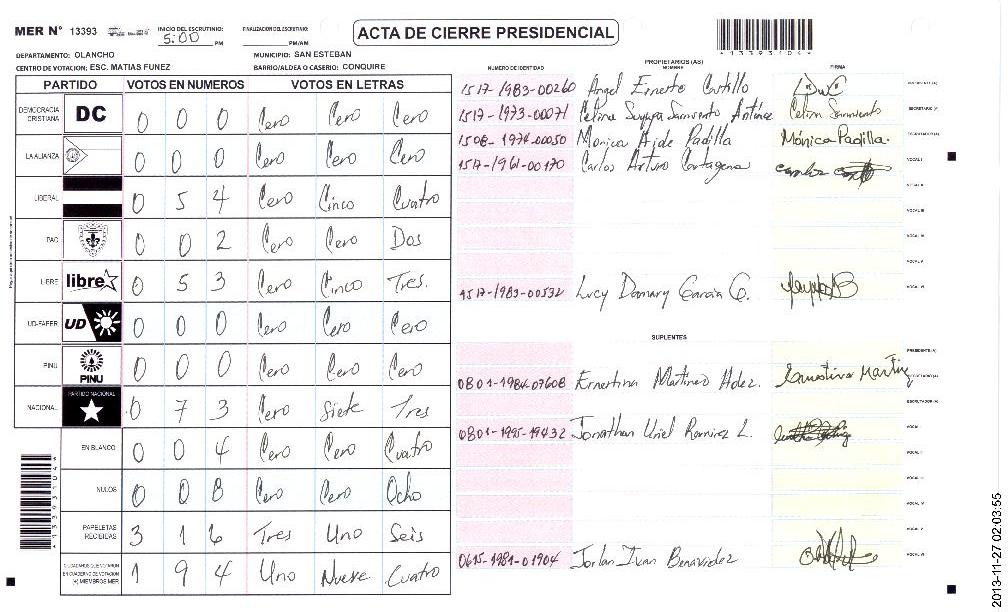 MER N° 13393
INICIO DEL ESCRUTINIO: 5:00 PM
FINALIZACION DEL ESCRUTINIO: PM/AM
ACTA DE CIERRE PRESIDENCIAL
13393104
DEPARTAMENTO: OLANCHO
MUNICIPIO: SAN ESTEBAN
CENTRO DE VOTACION: ESC. MATIAS FUNEZ
BARRIO/ALDEA O CASERIO: CONQUIRE
PARTIDO VOTOS EN NUMEROS VOTOS EN LETRAS
DEMOCRACIA CRISTIANA DC 0 0 0 Cero Cero Cero
LA ALIANZA 0 0 0 Cero Cero Cero
LIBERAL 0 5 4 Cero Cinco Cuatro
PAC 0 0 2 Cero Cero Dos
LIBRE libre 0 5 3 Cero Cinco Tres.
UD-FAPER UD 0 0 0 Cero Cero Cero
PINU PINU 0 0 0 Cero Cero Cero
NACIONAL PARTIDO NACIONAL 0 7 3 Cero Siete Tres
EN BLANCO 0 0 4 Cero Cero Cuatro
NULOS 0 0 8 Cero Cero Ocho
PAPELETAS RECIBIDAS 3 1 6 Tres Uno Seis
CIUDADANOS QUE VOTARON EN CUADERNO DE VOTACION (+) MIEMBROS MER 1 9 4 Uno Nueve Cuatro
PROPIETARIOS (AS)
NUMERO DE IDENTIDAD NOMBRE FIRMA
1517-1983-00260 Angel Ernesto Castillo PRESIDENTE (A)
1517-1973-00071 Celina Suyapa Sarmiento Antúnez Celin Sarmiento SECRETARIO (A)
1508-1974-00050 Monica Aide Padilla Mónica Padilla. ESCRUTADOR (A)
1517-1961-00170 Carlos Arturo Cartagena VOCAL I
VOCAL II
VOCAL III
VOCAL IV
VOCAL V
1517-1983-00532 Lucy Damary Garcia G. VOCAL VI
SUPLENTES
PRESIDENTE (A)
0801-1984-07608 Ernestina Martinez Hdez. SECRETARIO (A)
ESCRUTADOR (A)
0801-1995-19432 Jonathan Uriel Ramirez L. VOCAL I
VOCAL II
VOCAL III
VOCAL IV
VOCAL V
0615-1981-01904 Jorlan Ivan Benavidez VOCAL VI
13393104
2013-11-27 02:03:55